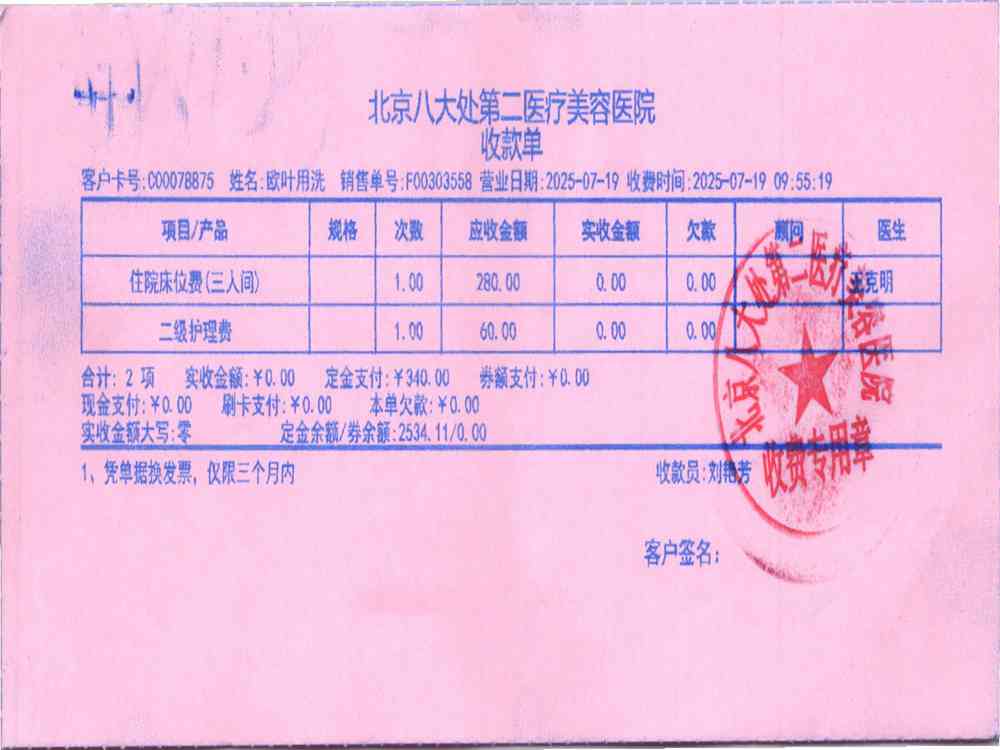 北京八大处第二医疗美容医院
收款单
客户卡号:C00078875 姓名:欧叶用洗 销售单号:F00303558 营业日期:2025-07-19 收费时间:2025-07-19 09:55:19
项目/产品 规格 次数 应收金额 实收金额 欠款 顾问 医生
住院床位费(三人间) 1.00 280.00 0.00 0.00 王克明
二级护理费 1.00 60.00 0.00 0.00
合计: 2 项 实收金额:¥0.00 定金支付:¥340.00 券额支付:¥0.00
现金支付:¥0.00 刷卡支付:¥0.00 本单欠款:¥0.00
实收金额大写:零 定金余额/券余额:2534.11/0.00
1、凭单据换发票，仅限三个月内 收款员:刘艳芳
客户签名:
北京八大处第二医疗美容医院
收费专用章